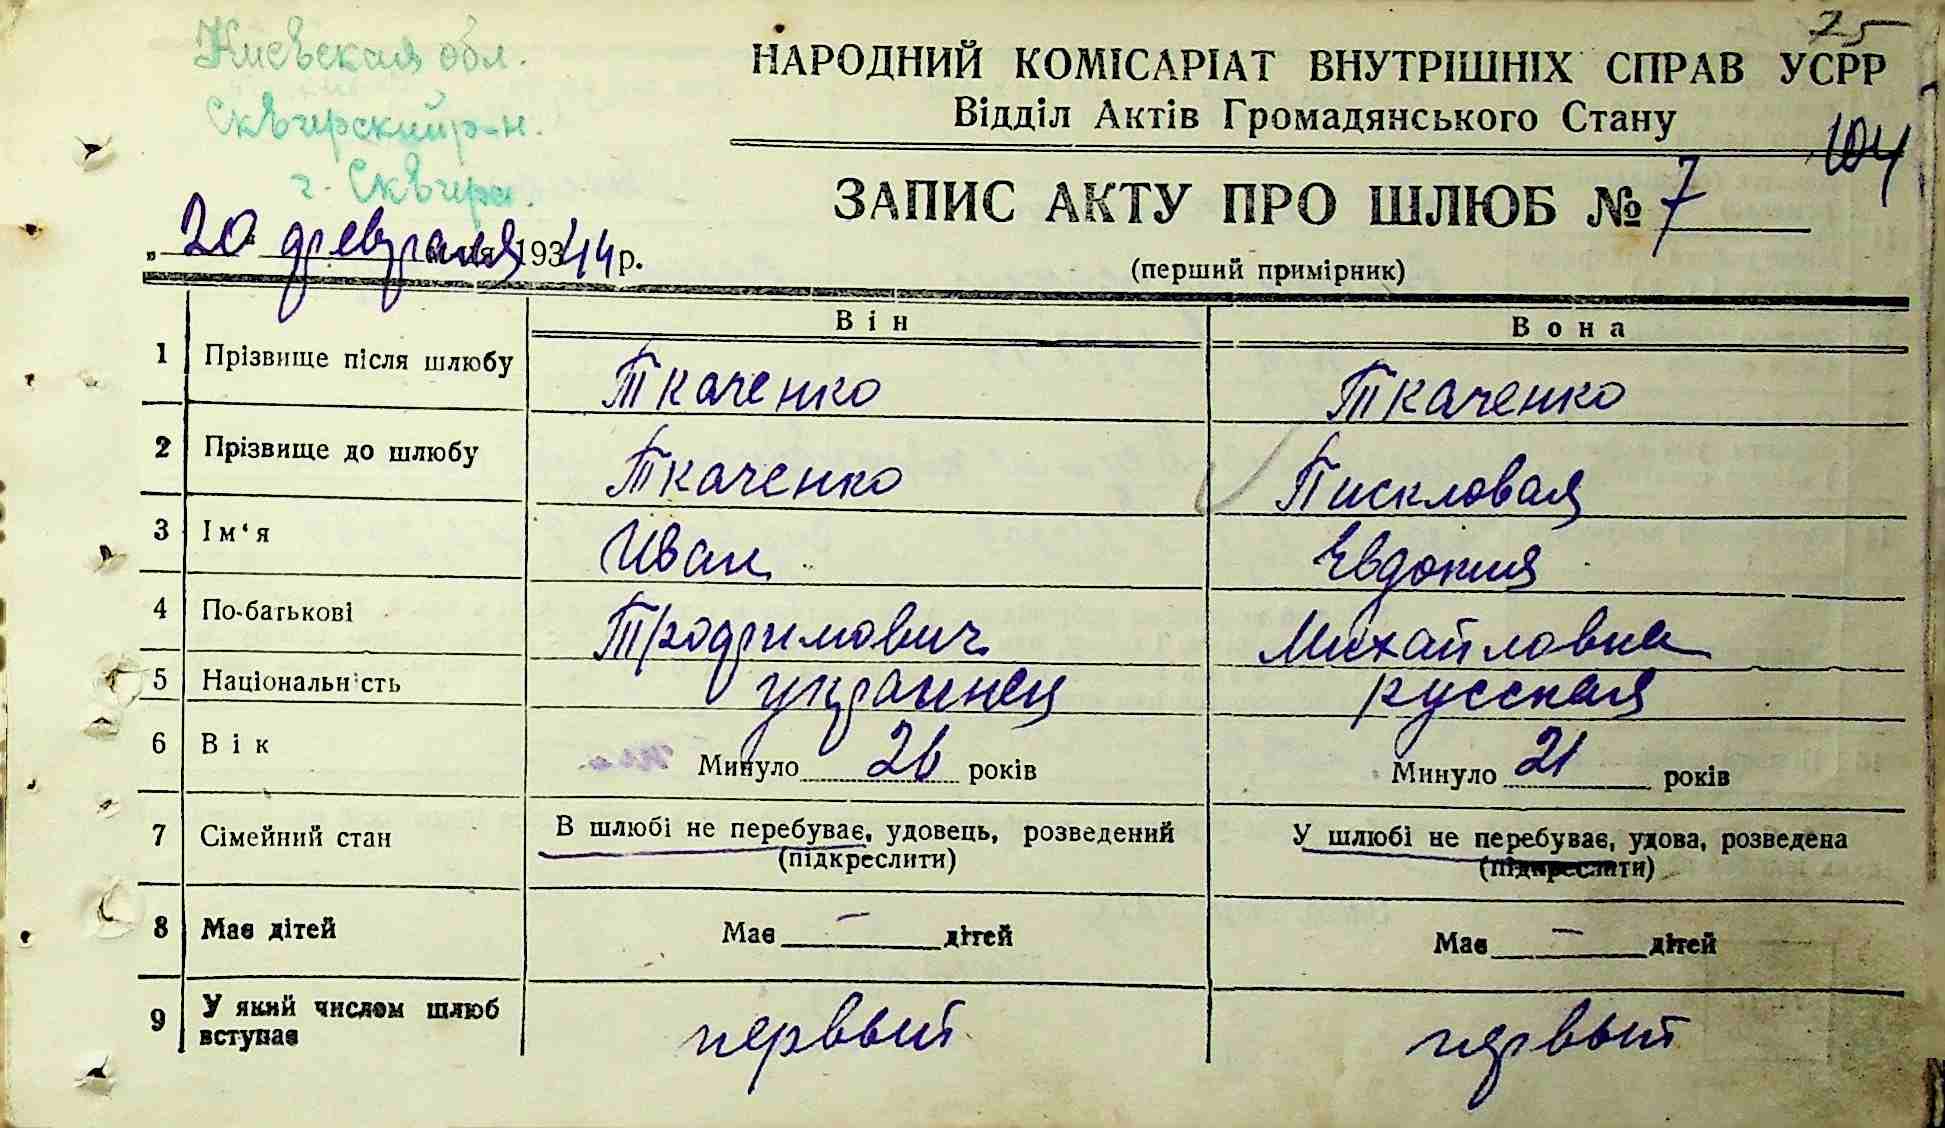 75
Киевская обл.
Сквирский р-н.
г. Сквира.
НАРОДНИЙ КОМІСАРІАТ ВНУТРІШНІХ СПРАВ УСРР
Відділ Актів Громадянського Стану
104
ЗАПИС АКТУ ПРО ШЛЮБ № 7
„ 20 февраля 1944 р.
(перший примірник)
Він Вона
1 Прізвище після шлюбу Ткаченко Ткаченко
2 Прізвище до шлюбу Ткаченко Пискловая
3 Ім‘я Иван Евдокия
4 По-батькові Трофимович Михайловна
5 Національність украинец русская
6 Вік Минуло 26 років Минуло 21 років
7 Сімейний стан В шлюбі не перебуває, удовець, розведений У шлюбі не перебуває, удова, розведена
(підкреслити) (підкреслити)
8 Має дітей Має — дітей Має — дітей
9 У який числом шлюб
вступає первый первый